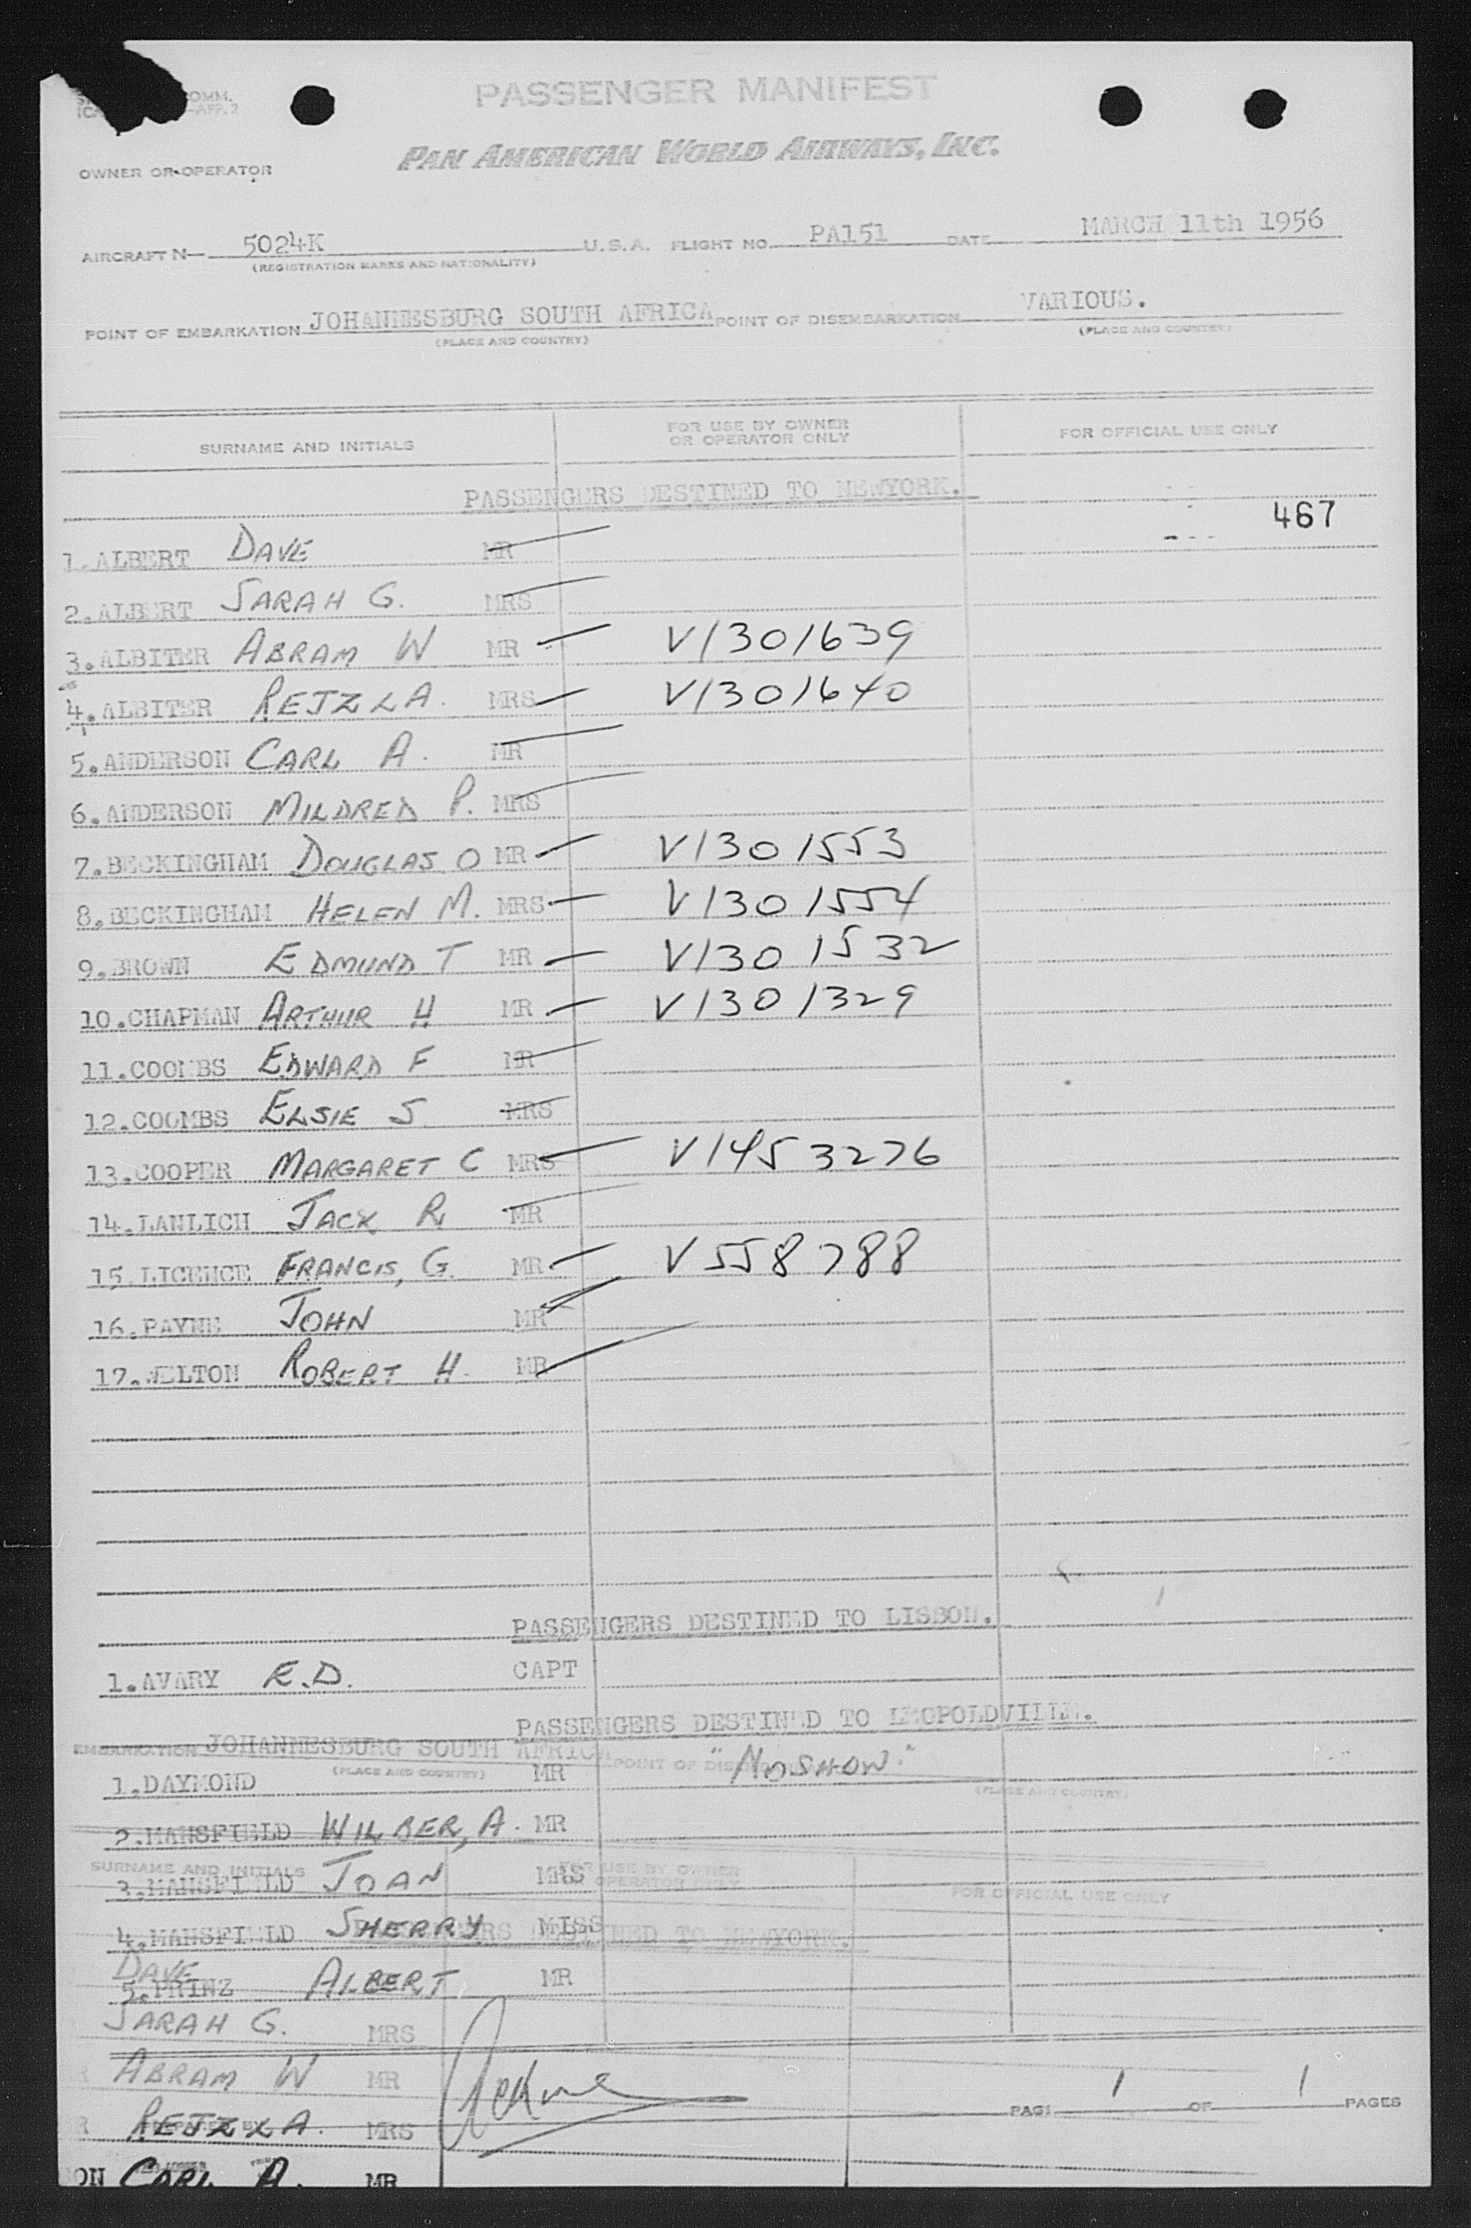 COMM.
ICA —APP.2
PASSENGER MANIFEST
OWNER OR OPERATOR PAN AMERICAN WORLD AIRWAYS, INC.
AIRCRAFT N— 5024K U.S.A. FLIGHT NO. PA151 DATE MARCH 11th 1956
(REGISTRATION MARKS AND NATIONALITY)
POINT OF EMBARKATION JOHANNESBURG SOUTH AFRICA POINT OF DISEMBARKATION VARIOUS.
(PLACE AND COUNTRY) (PLACE AND COUNTRY)
SURNAME AND INITIALS FOR USE BY OWNER OR OPERATOR ONLY FOR OFFICIAL USE ONLY
PASSENGERS DESTINED TO NEWYORK.
467
1.ALBERT DAVE MR
2.ALBERT SARAH G. MRS
3.ALBITER ABRAM W MR V1301639
4.ALBITER REJZLA. MRS V1301640
5.ANDERSON CARL A. MR
6.ANDERSON MILDRED P. MRS
7.BECKINGHAM DOUGLAS O MR V1301553
8.BECKINGHAM HELEN M. MRS V1301554
9.BROWN EDMUND T MR V1301532
10.CHAPMAN ARTHUR H MR V1301329
11.COOMBS EDWARD F MR
12.COOMBS ELSIE S MRS
13.COOPER MARGARET C MRS V1453276
14.LANLICH JACK R. MR
15.LICENCE FRANCIS, G. MR V558788
16.PAYNE JOHN MR
17.WELTON ROBERT H. MR
PASSENGERS DESTINED TO LISBON.
1.AVARY E.D. CAPT
PASSENGERS DESTINED TO LEOPOLDVILLE.
EMBARKATION JOHANNESBURG SOUTH AFRICA POINT OF
(PLACE AND COUNTRY) (PLACE AND COUNTRY)
1.DAYMOND MR "NOSHOW."
2.MANSFIELD WILBER, A. MR
SURNAME AND INITIALS FOR USE BY OWNER OPERATOR ONLY FOR OFFICIAL USE ONLY
3.MANSFIELD JOAN MRS
4.MANSFIELD SHERRY MISS
TO NEWYORK.
DAVE
5.PRINZ ALBERT MR
SARAH G. MRS
ABRAM W MR
PAGE 1 OF 1 PAGES
REJZLA. MRS
ON CARL A. MR